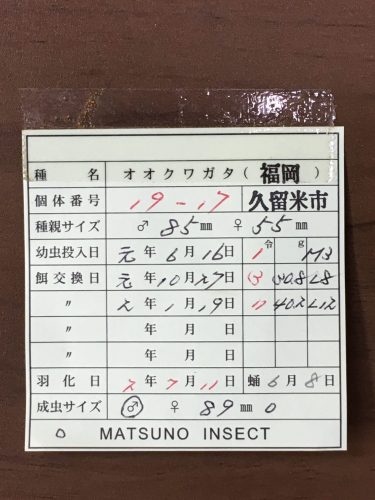 種 名 オオクワガタ（福岡）
個体番号 19-17 久留米市
種親サイズ ♂ 85㎜ ♀ 55㎜
幼虫投入日 元年 6月 16日 1 令 g M3
餌交換日 元年 10月 27日 (3) 30.8 L8
〃 2年 1月 19日 11 40.2 L12
〃 年 月 日
〃 年 月 日
羽化日 2年 7月 11日 蛹 6月 8日
成虫サイズ ♂ ♀ 89㎜ 0
0 MATSUNO INSECT